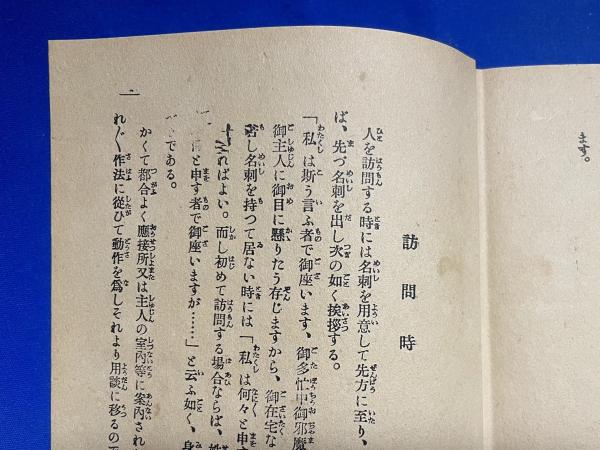 ます。
訪問時
人を訪問する時には名刺を用意して先方に至り、
ば、先づ名刺を出し次の如く挨拶する。
「私は斯う言ふ者で御座います、御多忙中御邪魔
御主人に御目に懸りたう存じますから、御在宅な
若し名刺を持つて居ない時には「私は何々と申す
ればよい。而し初めて訪問する場合ならば、
と申す者で御座いますが……」と云ふ如く、身
である。
かくて都合よく應接所又は主人の室內等に案內され
れ〴〵作法に從ひて動作を爲しそれより用談に移るの
一